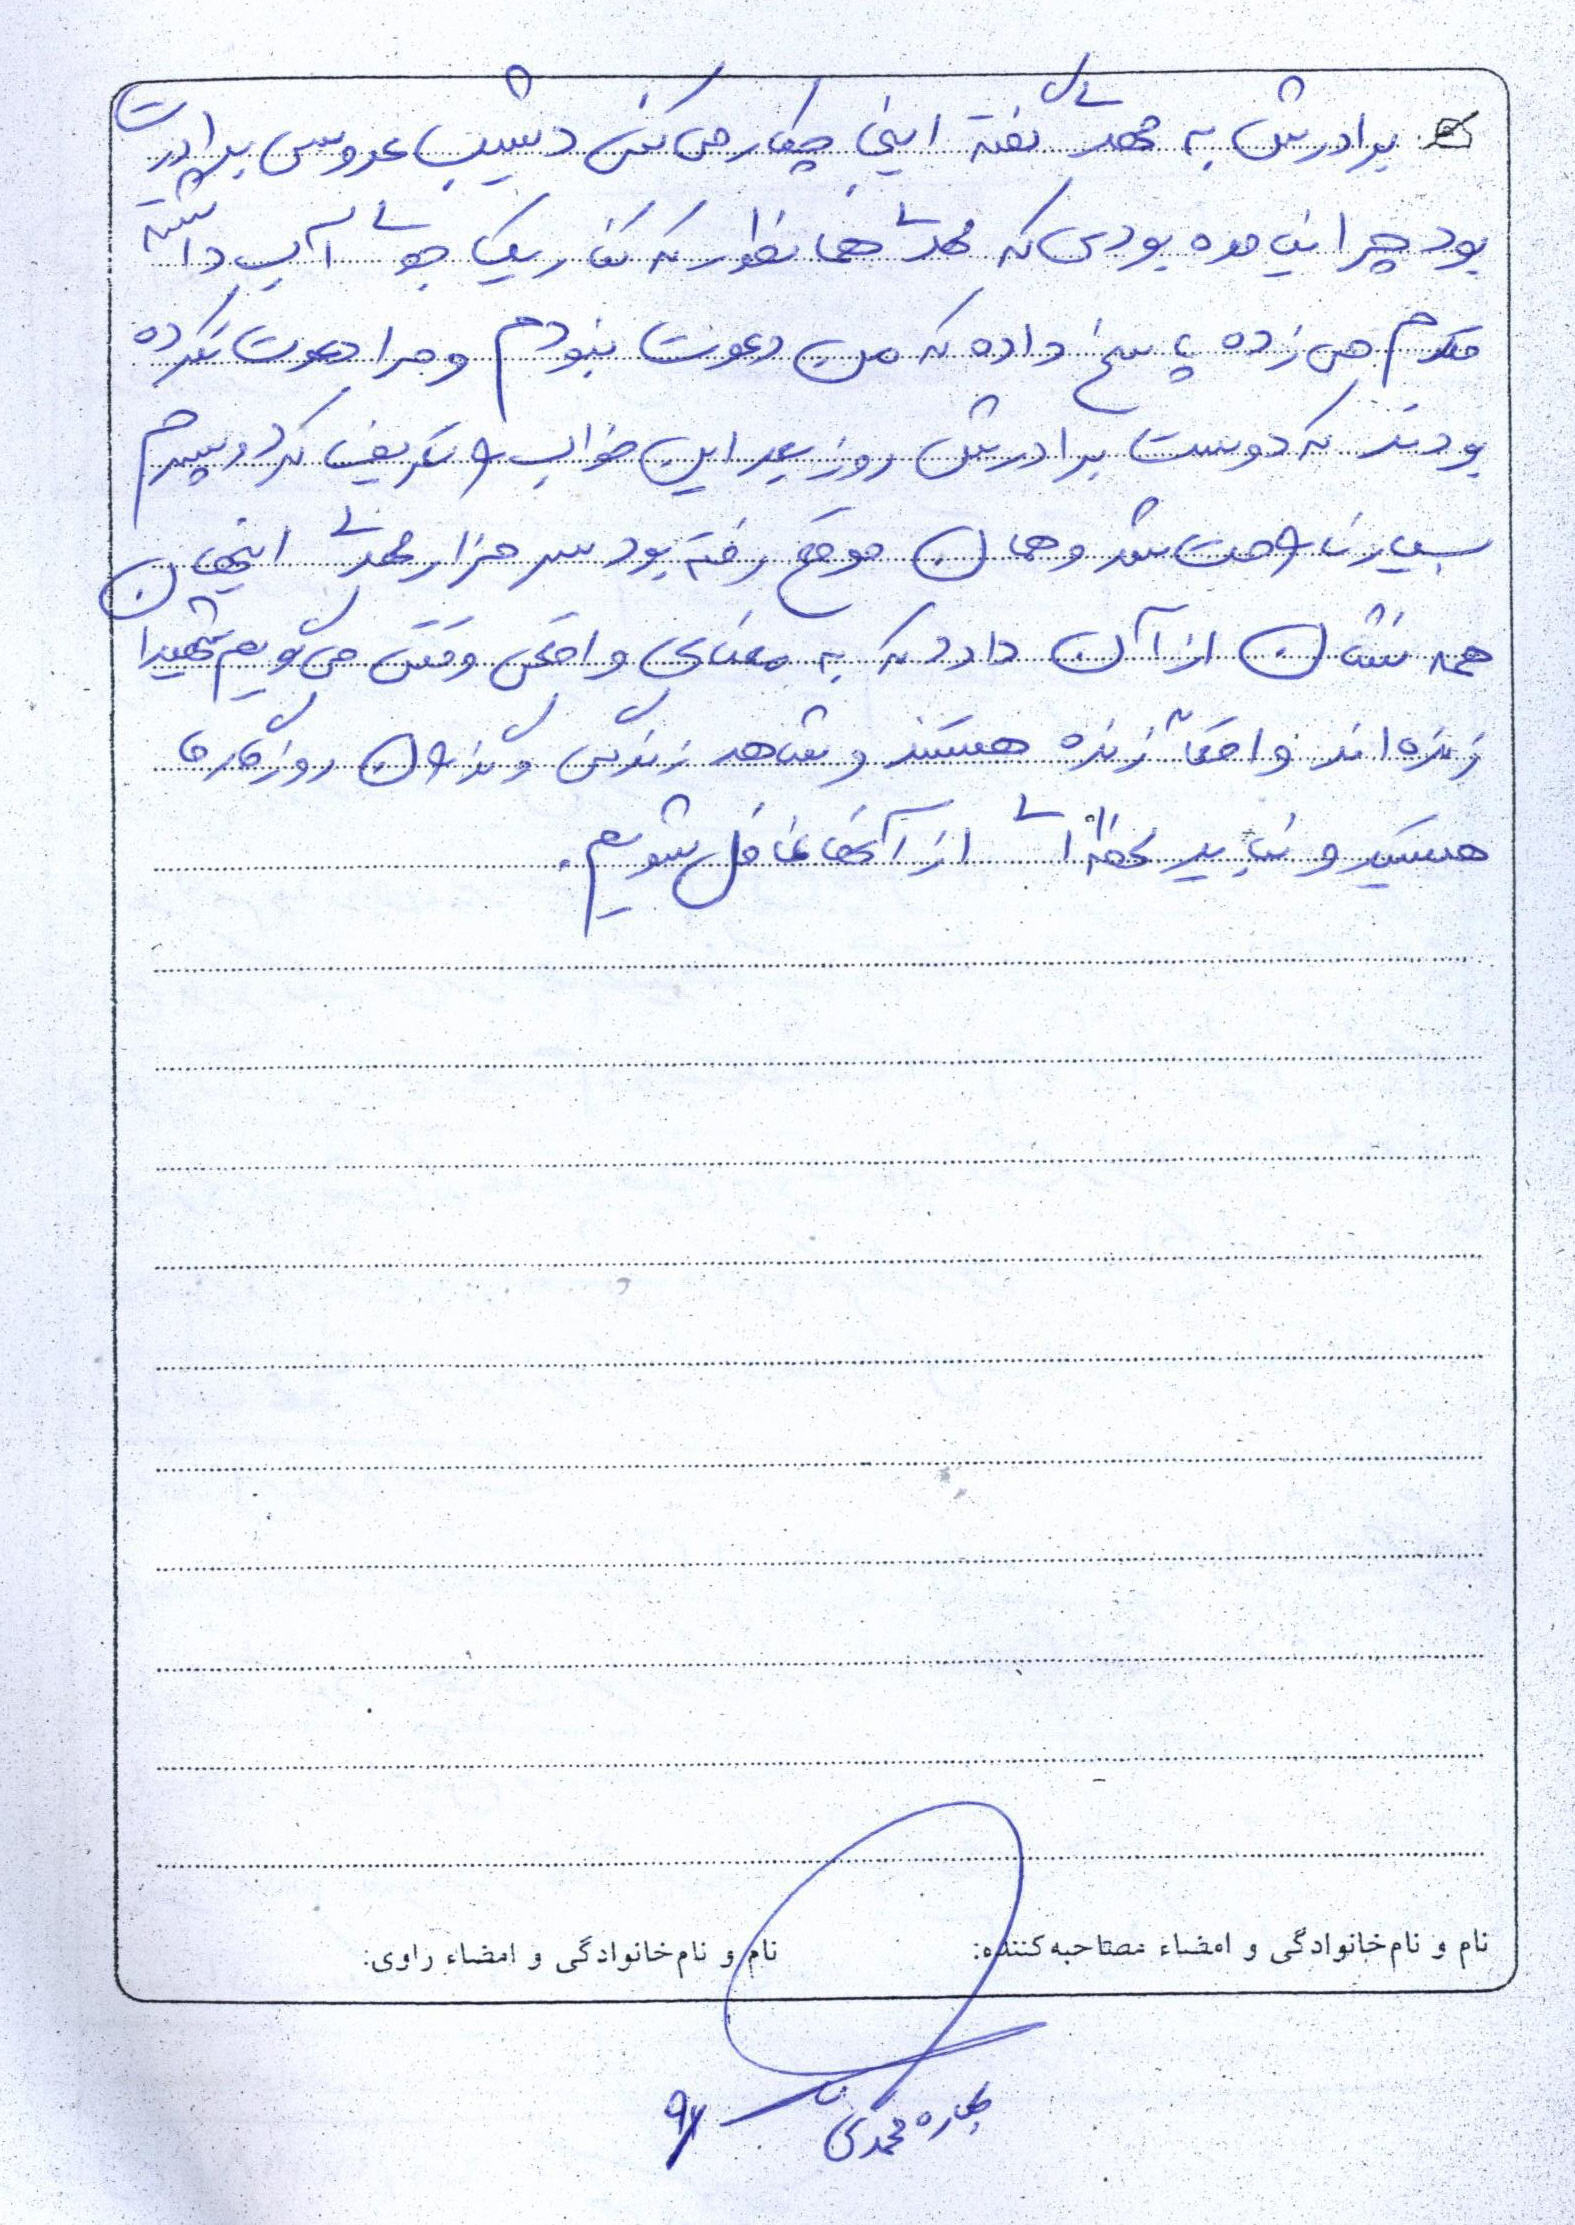 برادرش به مهدی گفته اینجا چکار می کنی دیشب عروسی برادرت
بود چرا نیامده بودی که مهدی همانطور که کنار یک جوی آب داشته
قدم می زده پاسخ داده که من دعوت نبودم و مرا دعوت نکرده
بودند که دوست برادرش روز بعد این خواب را تعریف کرد و پسرم
بسیار ناراحت شد و همان موقع رفته بود سر مزار مهدی اینها
همه نشان از آن دارد که به معنای واقعی وقتی می گویم شهدا
زنده اند واقعاً زنده هستند و شاهد زندگی و گذران روزگار ما
هستند و نباید لحظه ای از آنها غافل شویم.
نام و نام خانوادگی و امضاء مصاحبه کننده:
نام و نام خانوادگی و امضاء راوی:
محمدی